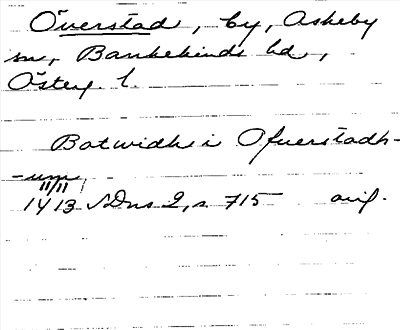 Överstad, by, Askeby
sn, Bankekinds hd,
Österg. l.
Botwidh i Ofuerstadh-
-um
11/11
1413 SDns 2, s 715 avs.